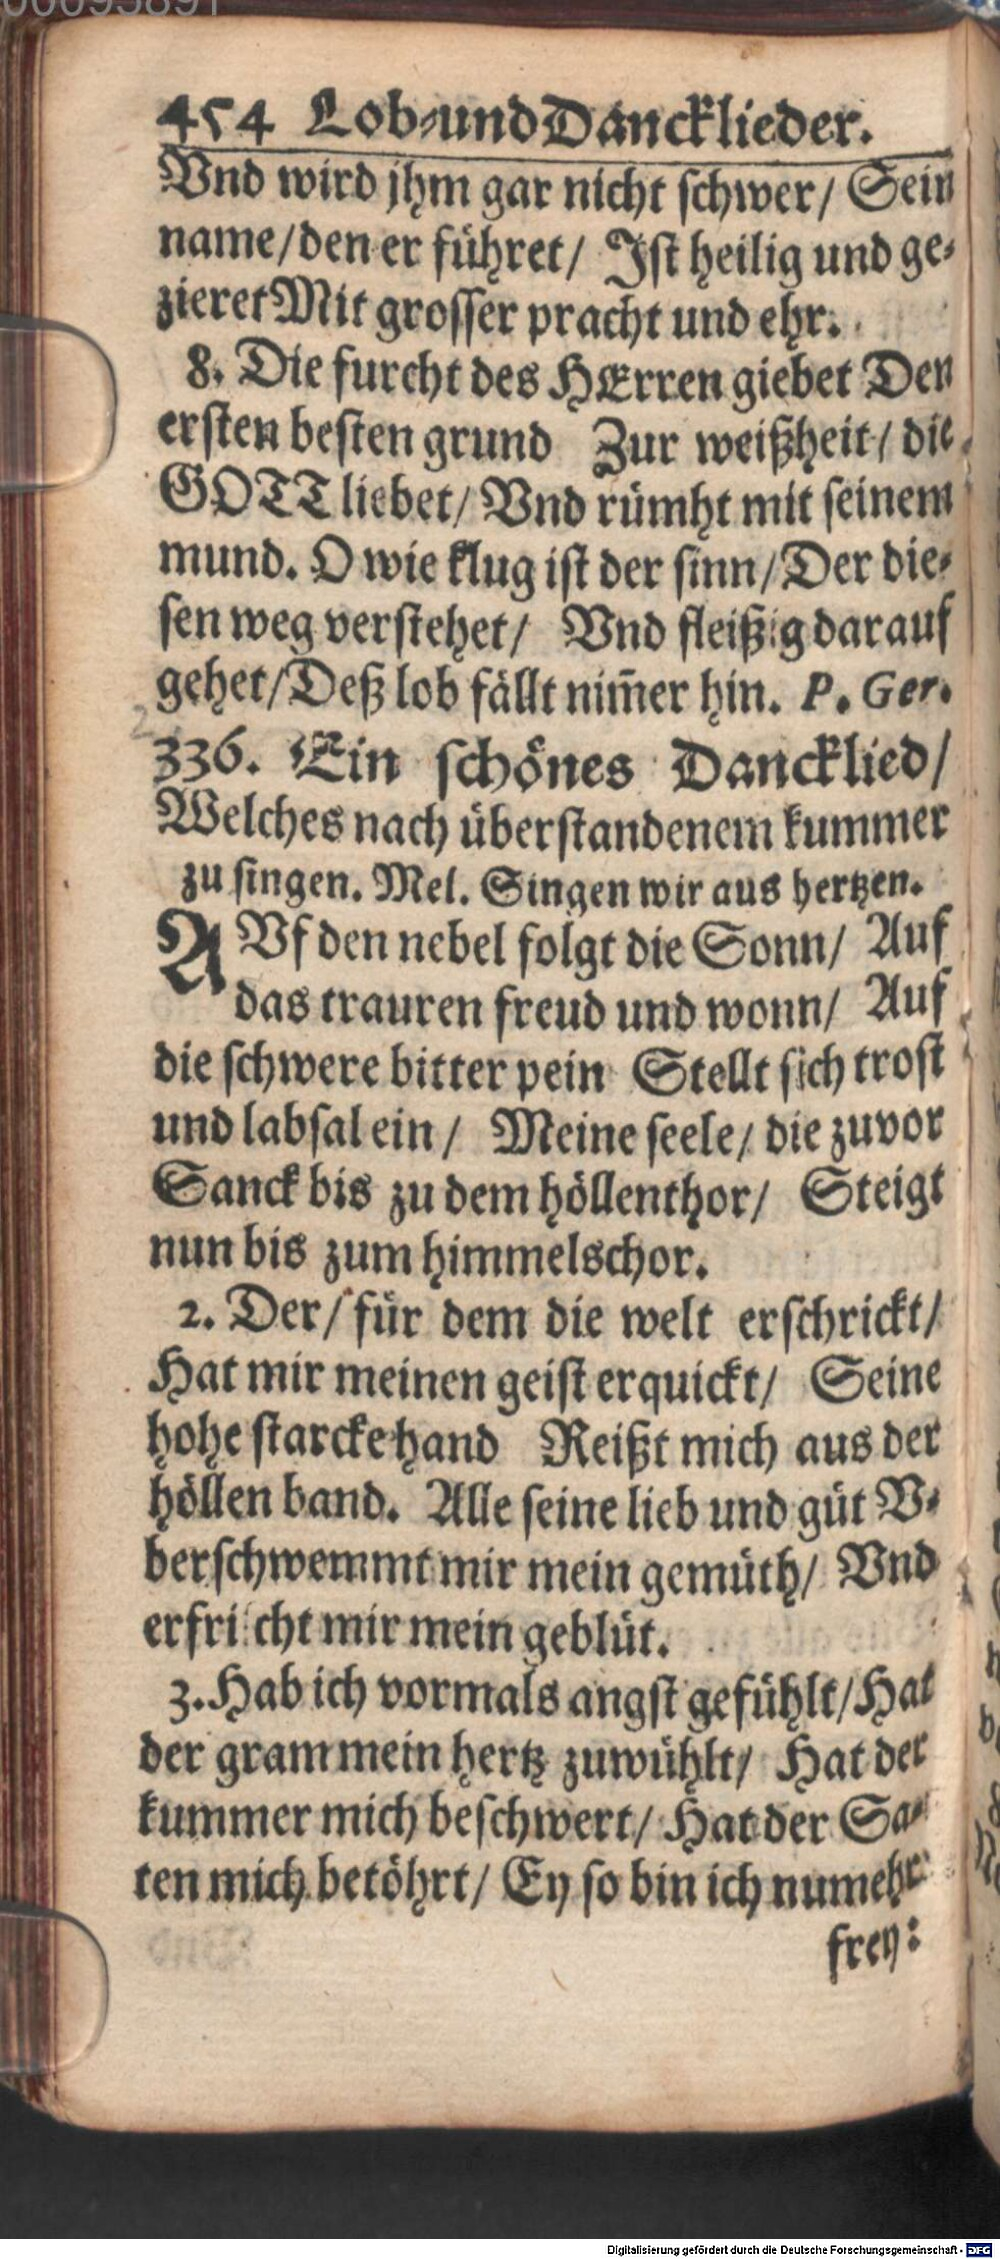 454 Lob-und Dancklieder.
Vnd wird jhm gar nicht schwer/ Sein
name/den er führet/ Ist heilig und ge-
zieret Mit grosser pracht und ehr.
8. Die furcht des HErren giebet Den
ersten besten grund Zur weißheit/ die
GOTT liebet/ Vnd rümht mit seinem
mund. O wie klug ist der sinn/Der die-
sen weg verstehet/ Vnd fleißig darauf
gehet/Deß lob fällt nim̃er hin. P. Ger.
336. Ein schönes Dancklied/
Welches nach überstandenem kummer
zu singen. Mel. Singen wir aus hertzen.
AVf den nebel folgt die Sonn/ Auf
das trauren freud und wonn/ Auf
die schwere bitter pein Stellt sich trost
und labsal ein/ Meine seele/ die zuvor
Sanck bis zu dem höllenthor/ Steigt
nun bis zum himmelschor.
2. Der/ für dem die welt erschrickt/
Hat mir meinen geist erquickt/ Seine
hohe starcke hand Reißt mich aus der
höllen band. Alle seine lieb und güt V-
berschwemmt mir mein gemüth/ Vnd
erfrischt mir mein geblüt.
3. Hab ich vormals angst gefühlt/Hat
der gram mein hertz zuwühlt/ Hat der
kummer mich beschwert/ Hat der Sa-
ten mich betöhrt/ Ey so bin ich numehr
frey:
Digitalisierung gefördert durch die Deutsche Forschungsgemeinschaft - DFG